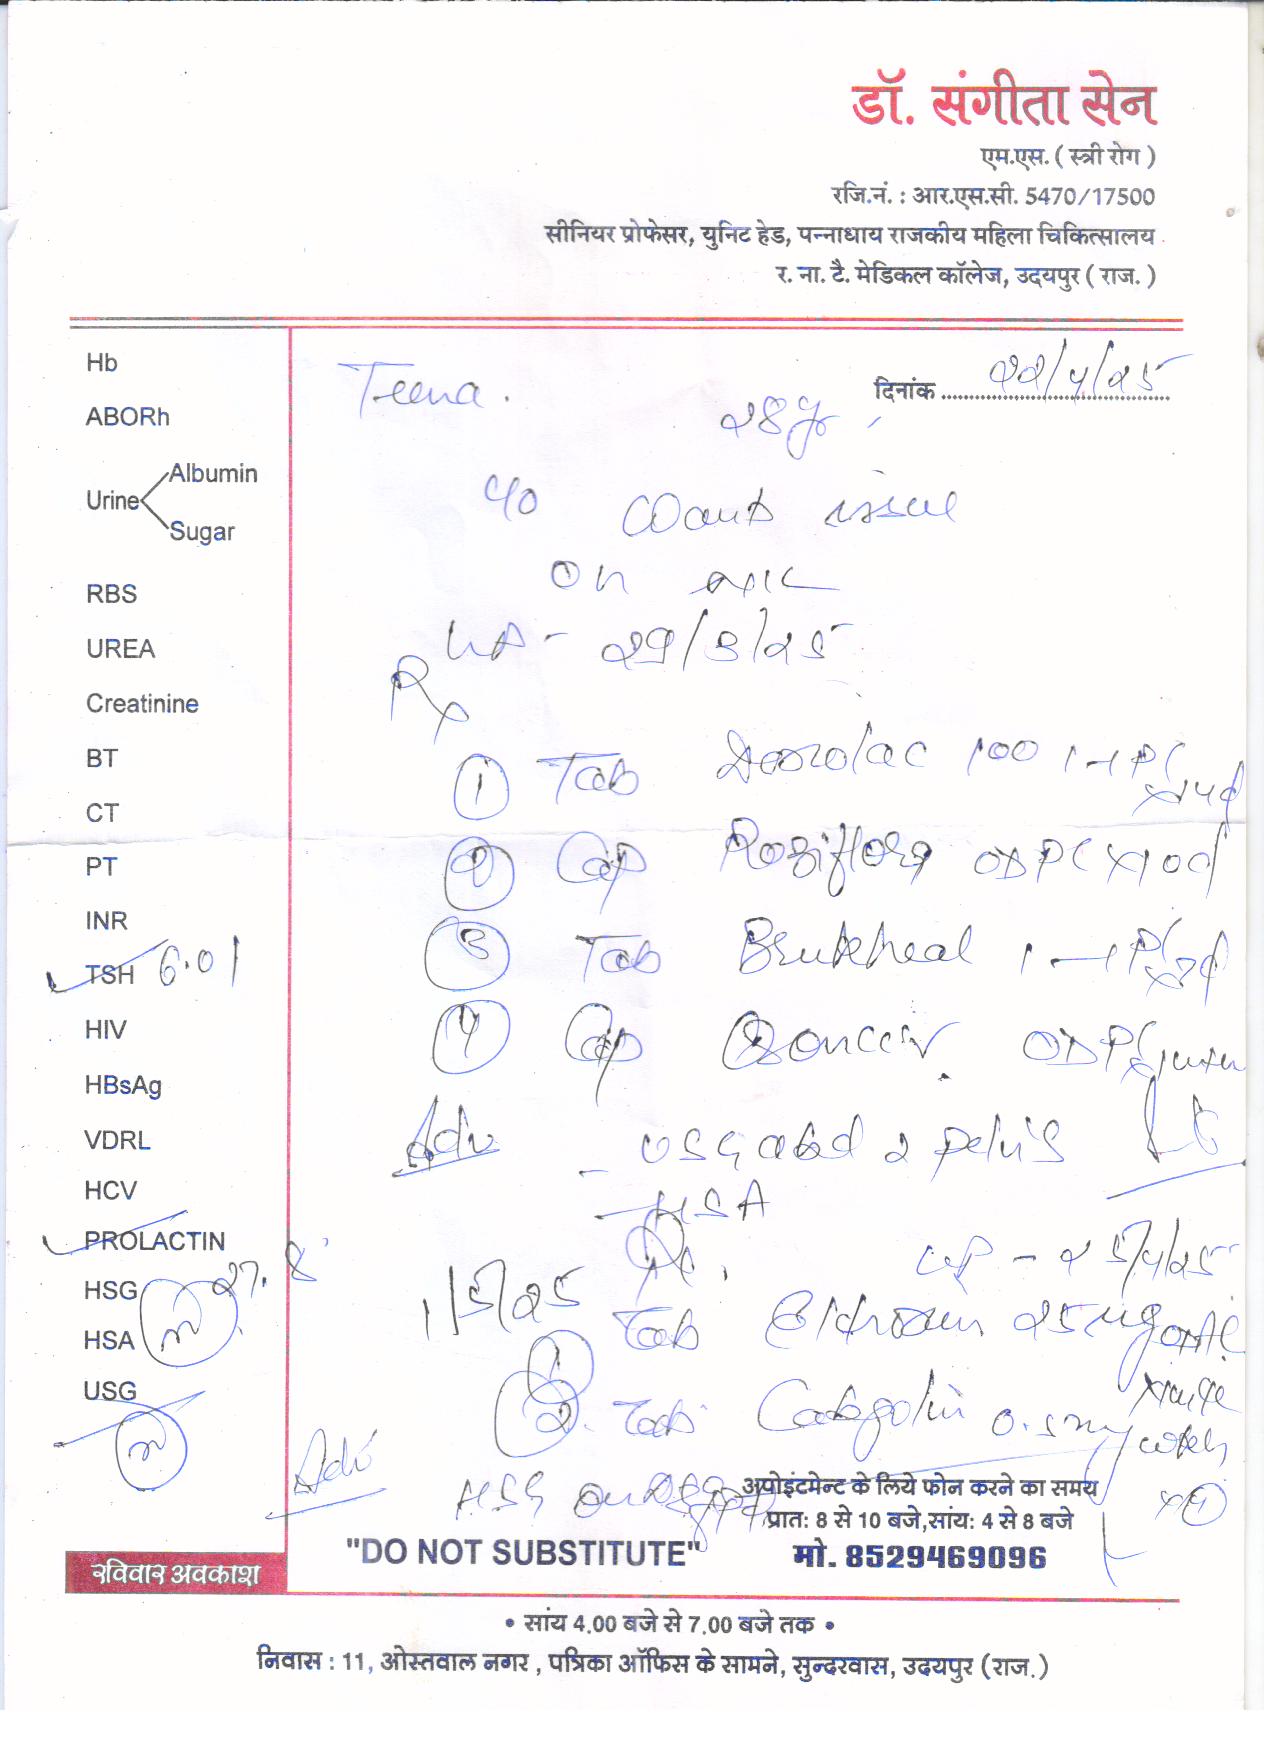 डॉ. संगीता सेन
एम.एस. ( स्त्री रोग )
रजि.नं. : आर.एस.सी. 5470/17500
सीनियर प्रोफेसर, युनिट हेड, पन्नाधाय राजकीय महिला चिकित्सालय
र. ना. टै. मेडिकल कॉलेज, उदयपुर ( राज. )
Hb
ABORh
Urine
Albumin
Sugar
RBS
UREA
Creatinine
BT
CT
PT
INR
TSH 6.01
HIV
HBsAg
VDRL
HCV
PROLACTIN
27.8
HSG
HSA
USG
रविवार अवकाश
Teena.
दिनांक 22/4/25
28y
c/o wants issue
on
29/3/25
Rx
① Tab 100 1-1 PC
② Cap OD PC x 10d
③ Tab 1-1 PC x 7d
④ Cap OD PC
Adv - USG abd & pelvis
- HSA
Rx
LMP - 25/4/25
1/5/25
① Tab 25 ug
2. Tab 0.5 mg
Adv HSG
अपोइंटमेन्ट के लिये फोन करने का समय
प्रातः 8 से 10 बजे,सांयः 4 से 8 बजे
"DO NOT SUBSTITUTE"
मो. 8529469096
• सांय 4.00 बजे से 7.00 बजे तक •
निवास : 11, ओस्तवाल नगर , पत्रिका ऑफिस के सामने, सुन्दरवास, उदयपुर (राज.)